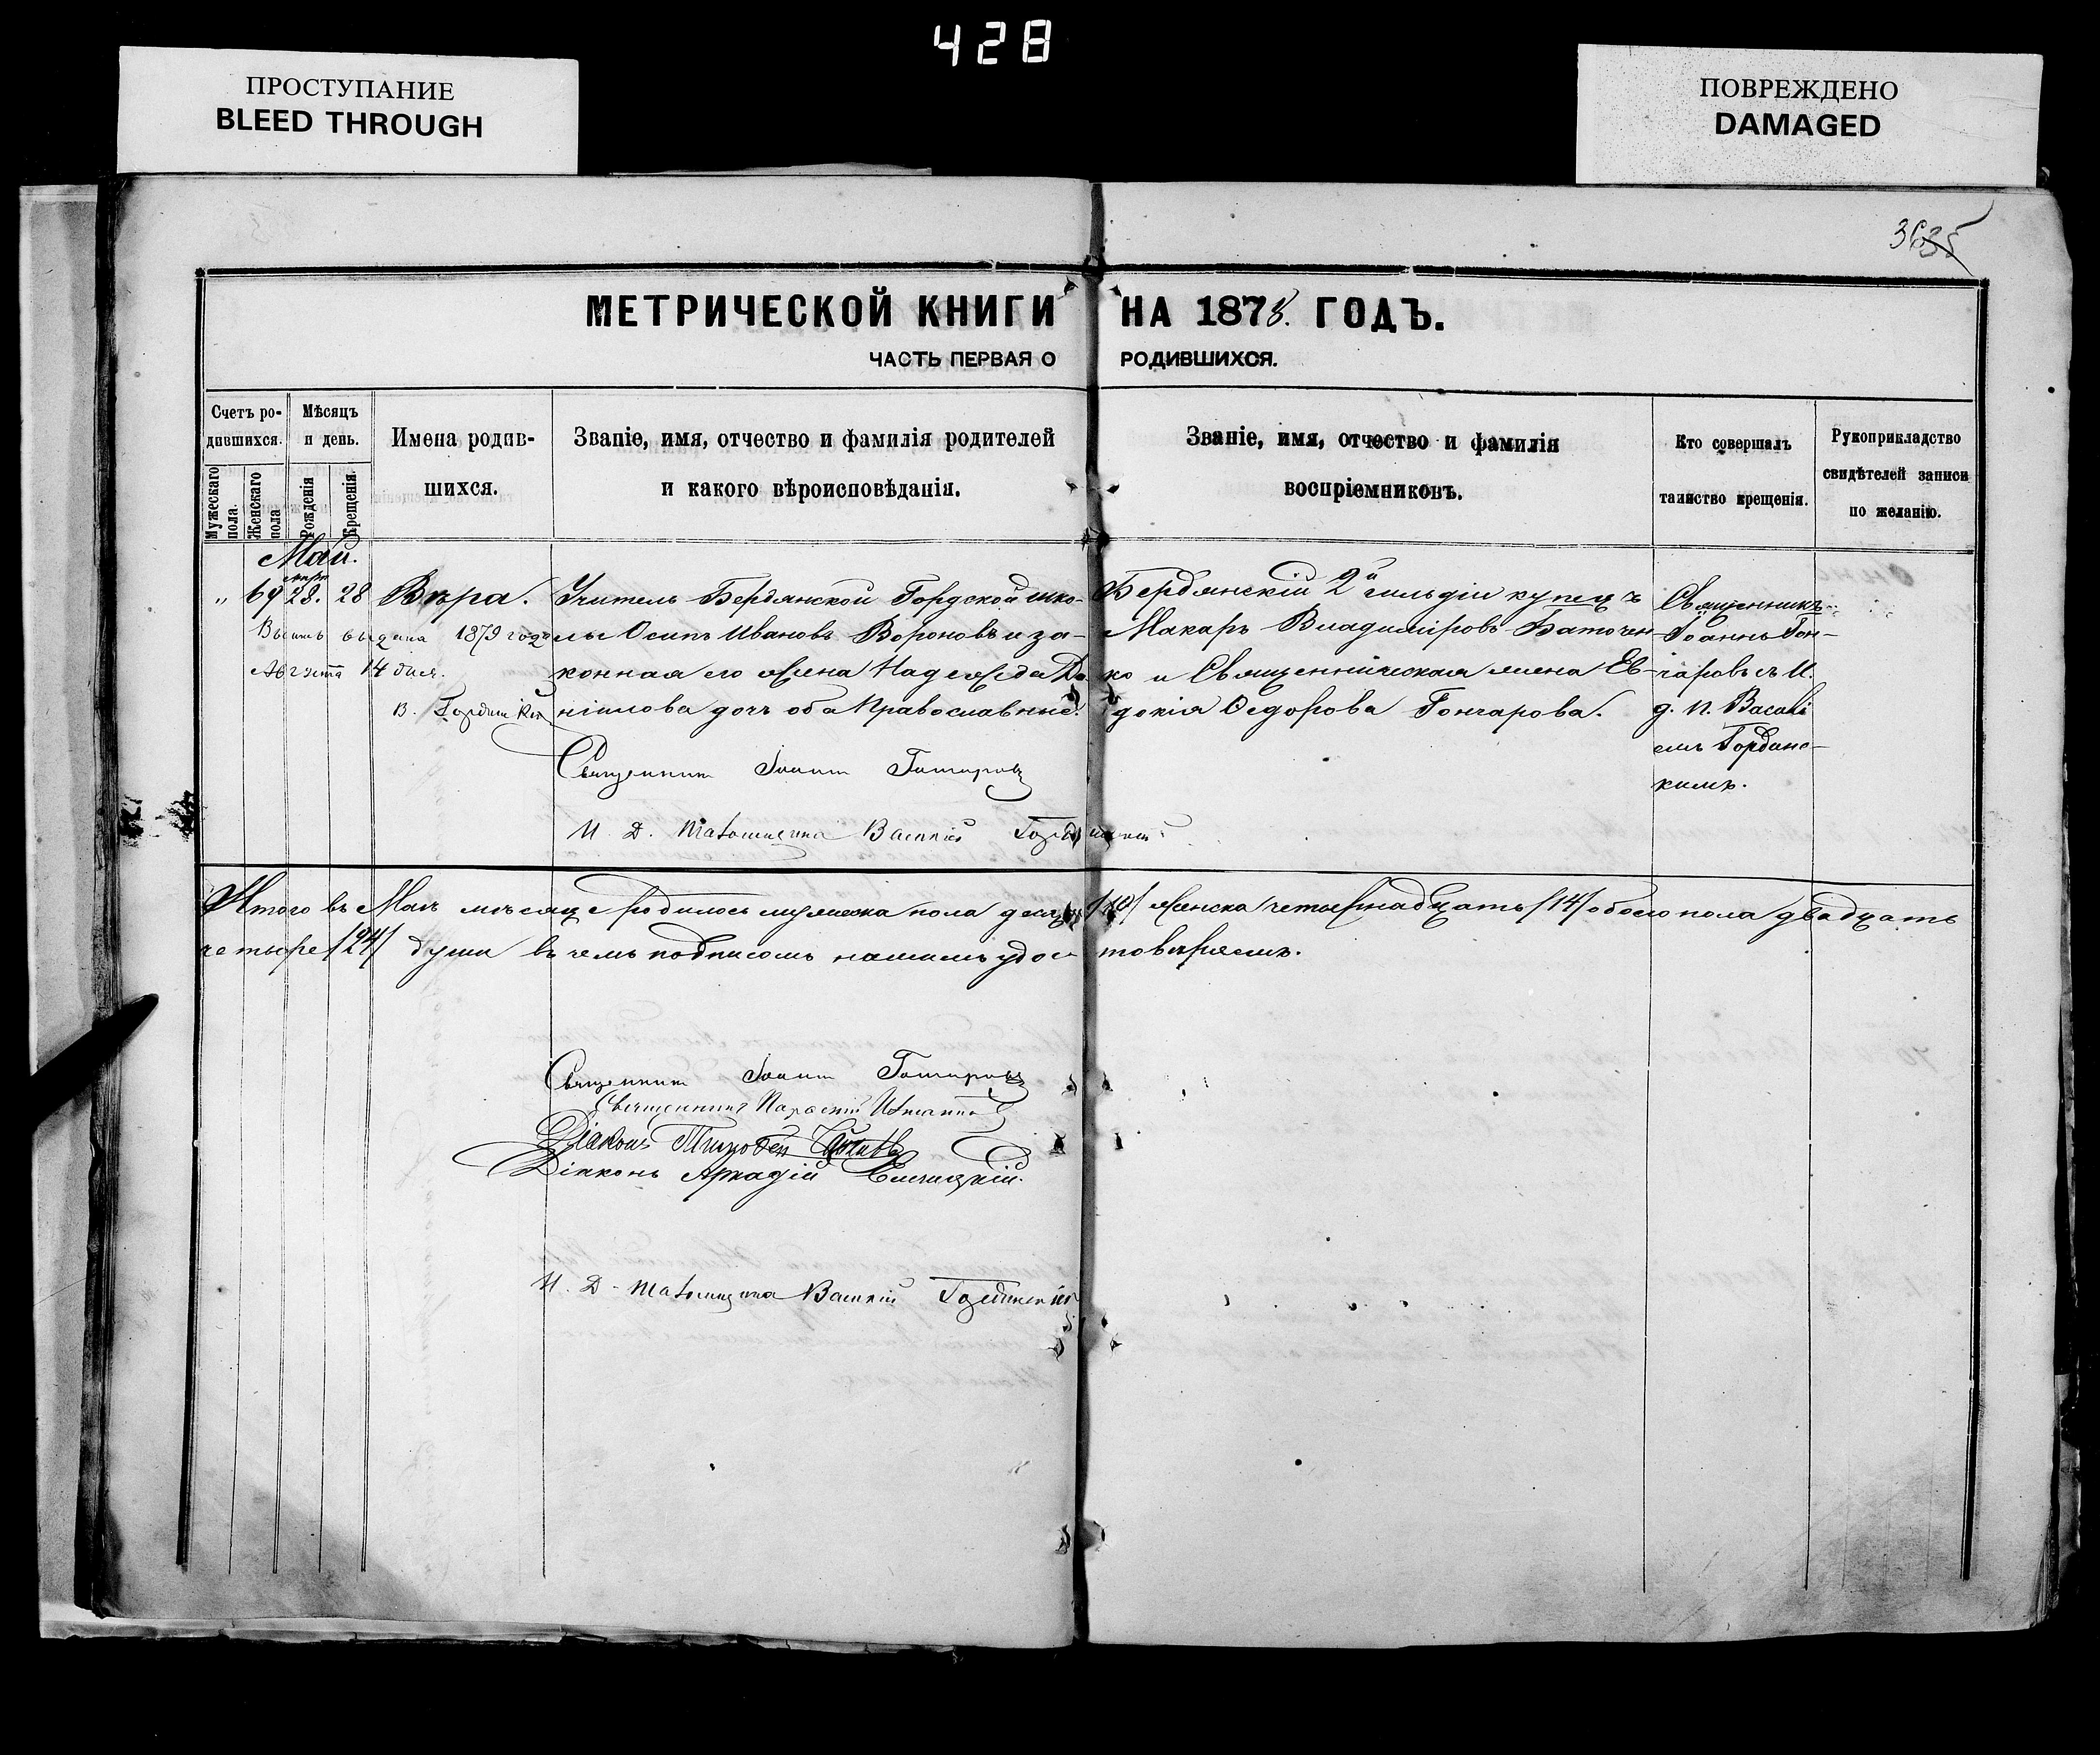 428
ПРОСТУПАНИЕ
BLEED THROUGH
ПОВРЕЖДЕНО
DAMAGED
3635
МЕТРИЧЕСКОЙ КНИГИ НА 1878. ГОДЪ.
ЧАСТЬ ПЕРВАЯ О РОДИВШИХСЯ.
Счетъ ро-
дившихся.
Мужескаго пола.
Женскаго пола
Мѣсяцъ
и день.
Рожденія
Крещенія.
Имена родив-
шихся.
Званіе, имя, отчество и фамилія родителей
и какого вѣроисповѣданія.
Званіе, имя, отчество и фамилія
воспріемниковъ.
Кто совершалъ
таинство крещенія.
Рукоприкладство
свидѣтелей записи
по желанію.
Май.
„ 69 28. 28 Вѣра.
выдана 1879 года
Августа 14 дня.
Учитель Бердянской Гордской шко-
лы Осипъ Ивановъ Вороновъ и за-
конная его жена Надежда Да-
ніилова дочь оба Православные.
Бердянскій 2й гильдіи купецъ
Макаръ Владиміровъ Баточен-
ко и Священническая жена Ев-
докія Ѳедорова Гончарова.
Священникъ
Іоаннъ Гон-
чаровъ съ И.
д. п. Васил
емъ Гордынс-
кимъ.
Священникъ Іоаннъ Гончаровъ
И. Д. Псаломщика Василій Гордынскій
Итого въ Маѣ мѣсяце родилось мужеска пола десять /10/ женска четырнадцать /14/ обоего пола двадцать
четыре /24/ души въ чемъ подписомъ нашимъ удос- товѣряемъ.
Священникъ Іоаннъ Гончаровъ
Священникъ
Діаконъ Тимофей
Діаконъ Аркадій
И. Д. Псаломщика Василій Гордынскій